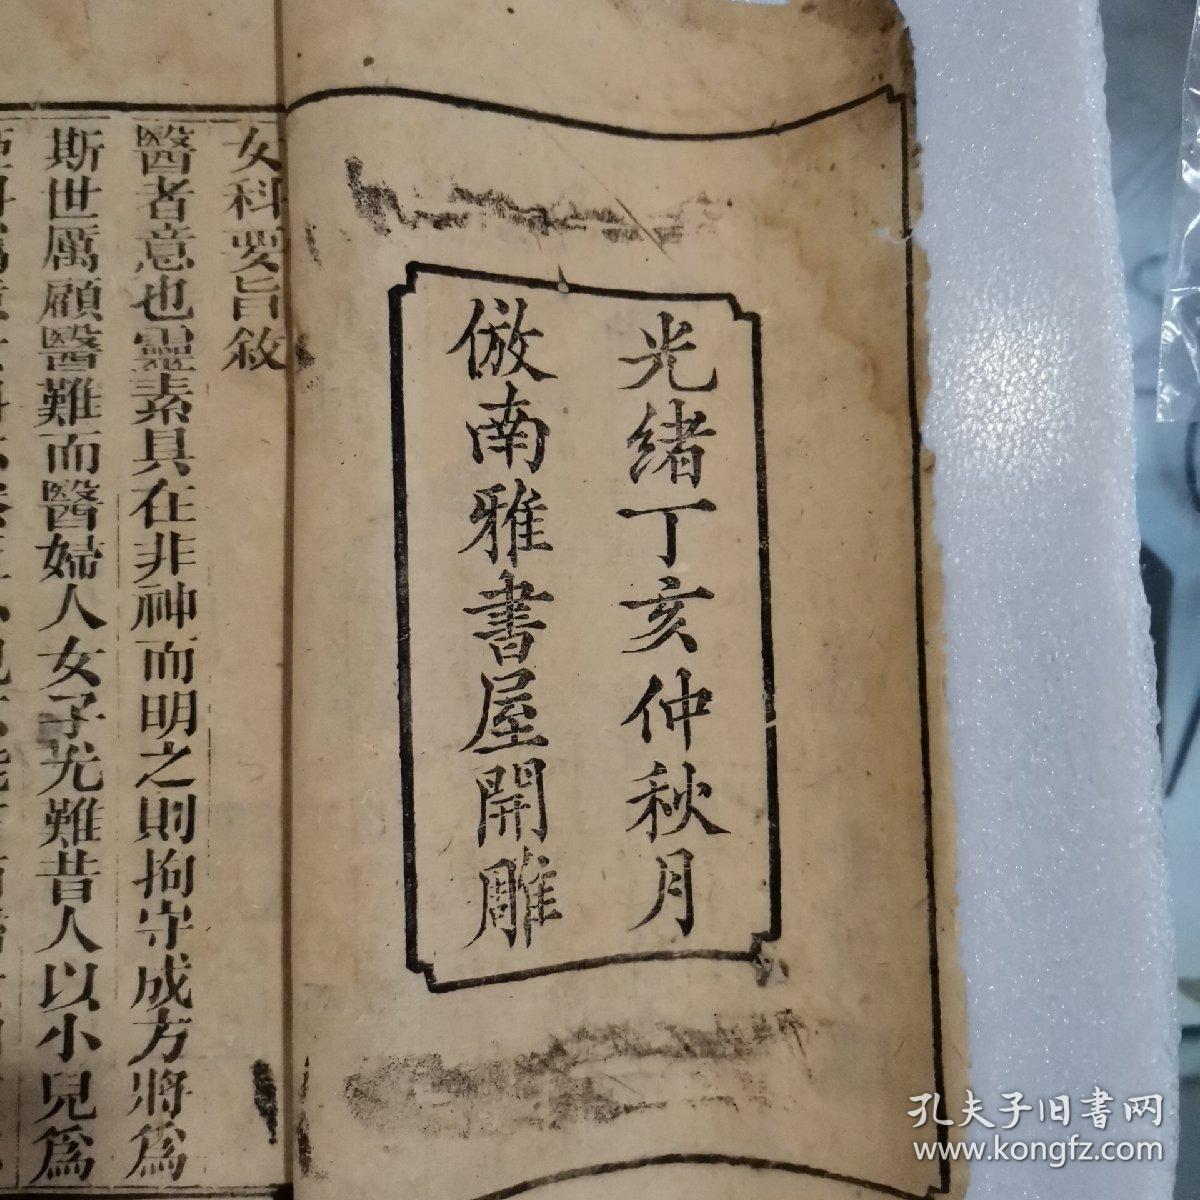 光緒丁亥仲秋月
倣南雅書屋開雕
女科要旨敘
醫者意也靈素具在非神而明之則拘守成方將爲
斯世厲顧醫難而醫婦人女子尤難昔人以小兒爲
孔夫子旧书网
www.kongfz.com